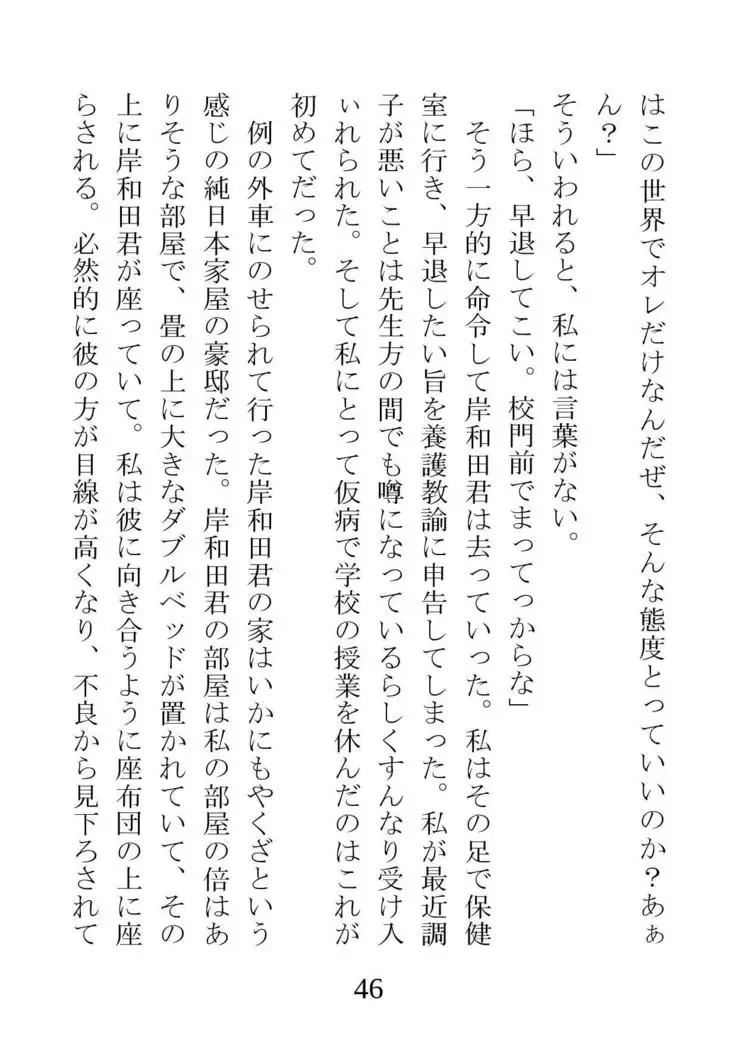 はこの世界でオレだけなんだぜ、そんな態度とっていいのか？あぁ
ん？」
そういわれると、私には言葉がない。
「ほら、早退してこい。校門前でまってっからな」
そう一方的に命令して岸和田君は去っていった。私はその足で保健
室に行き、早退したい旨を養護教諭に申告してしまった。私が最近調
子が悪いことは先生方の間でも噂になっているらしくすんなり受け入
ぃれられた。そして私にとって仮病で学校の授業を休んだのはこれが
初めてだった。
例の外車にのせられて行った岸和田君の家はいかにもやくざという
感じの純日本家屋の豪邸だった。岸和田君の部屋は私の部屋の倍はあ
りそうな部屋で、畳の上に大きなダブルベッドが置かれていて、その
上に岸和田君が座っていて。私は彼に向き合うように座布団の上に座
らされる。必然的に彼の方が目線が高くなり、不良から見下ろされて
46